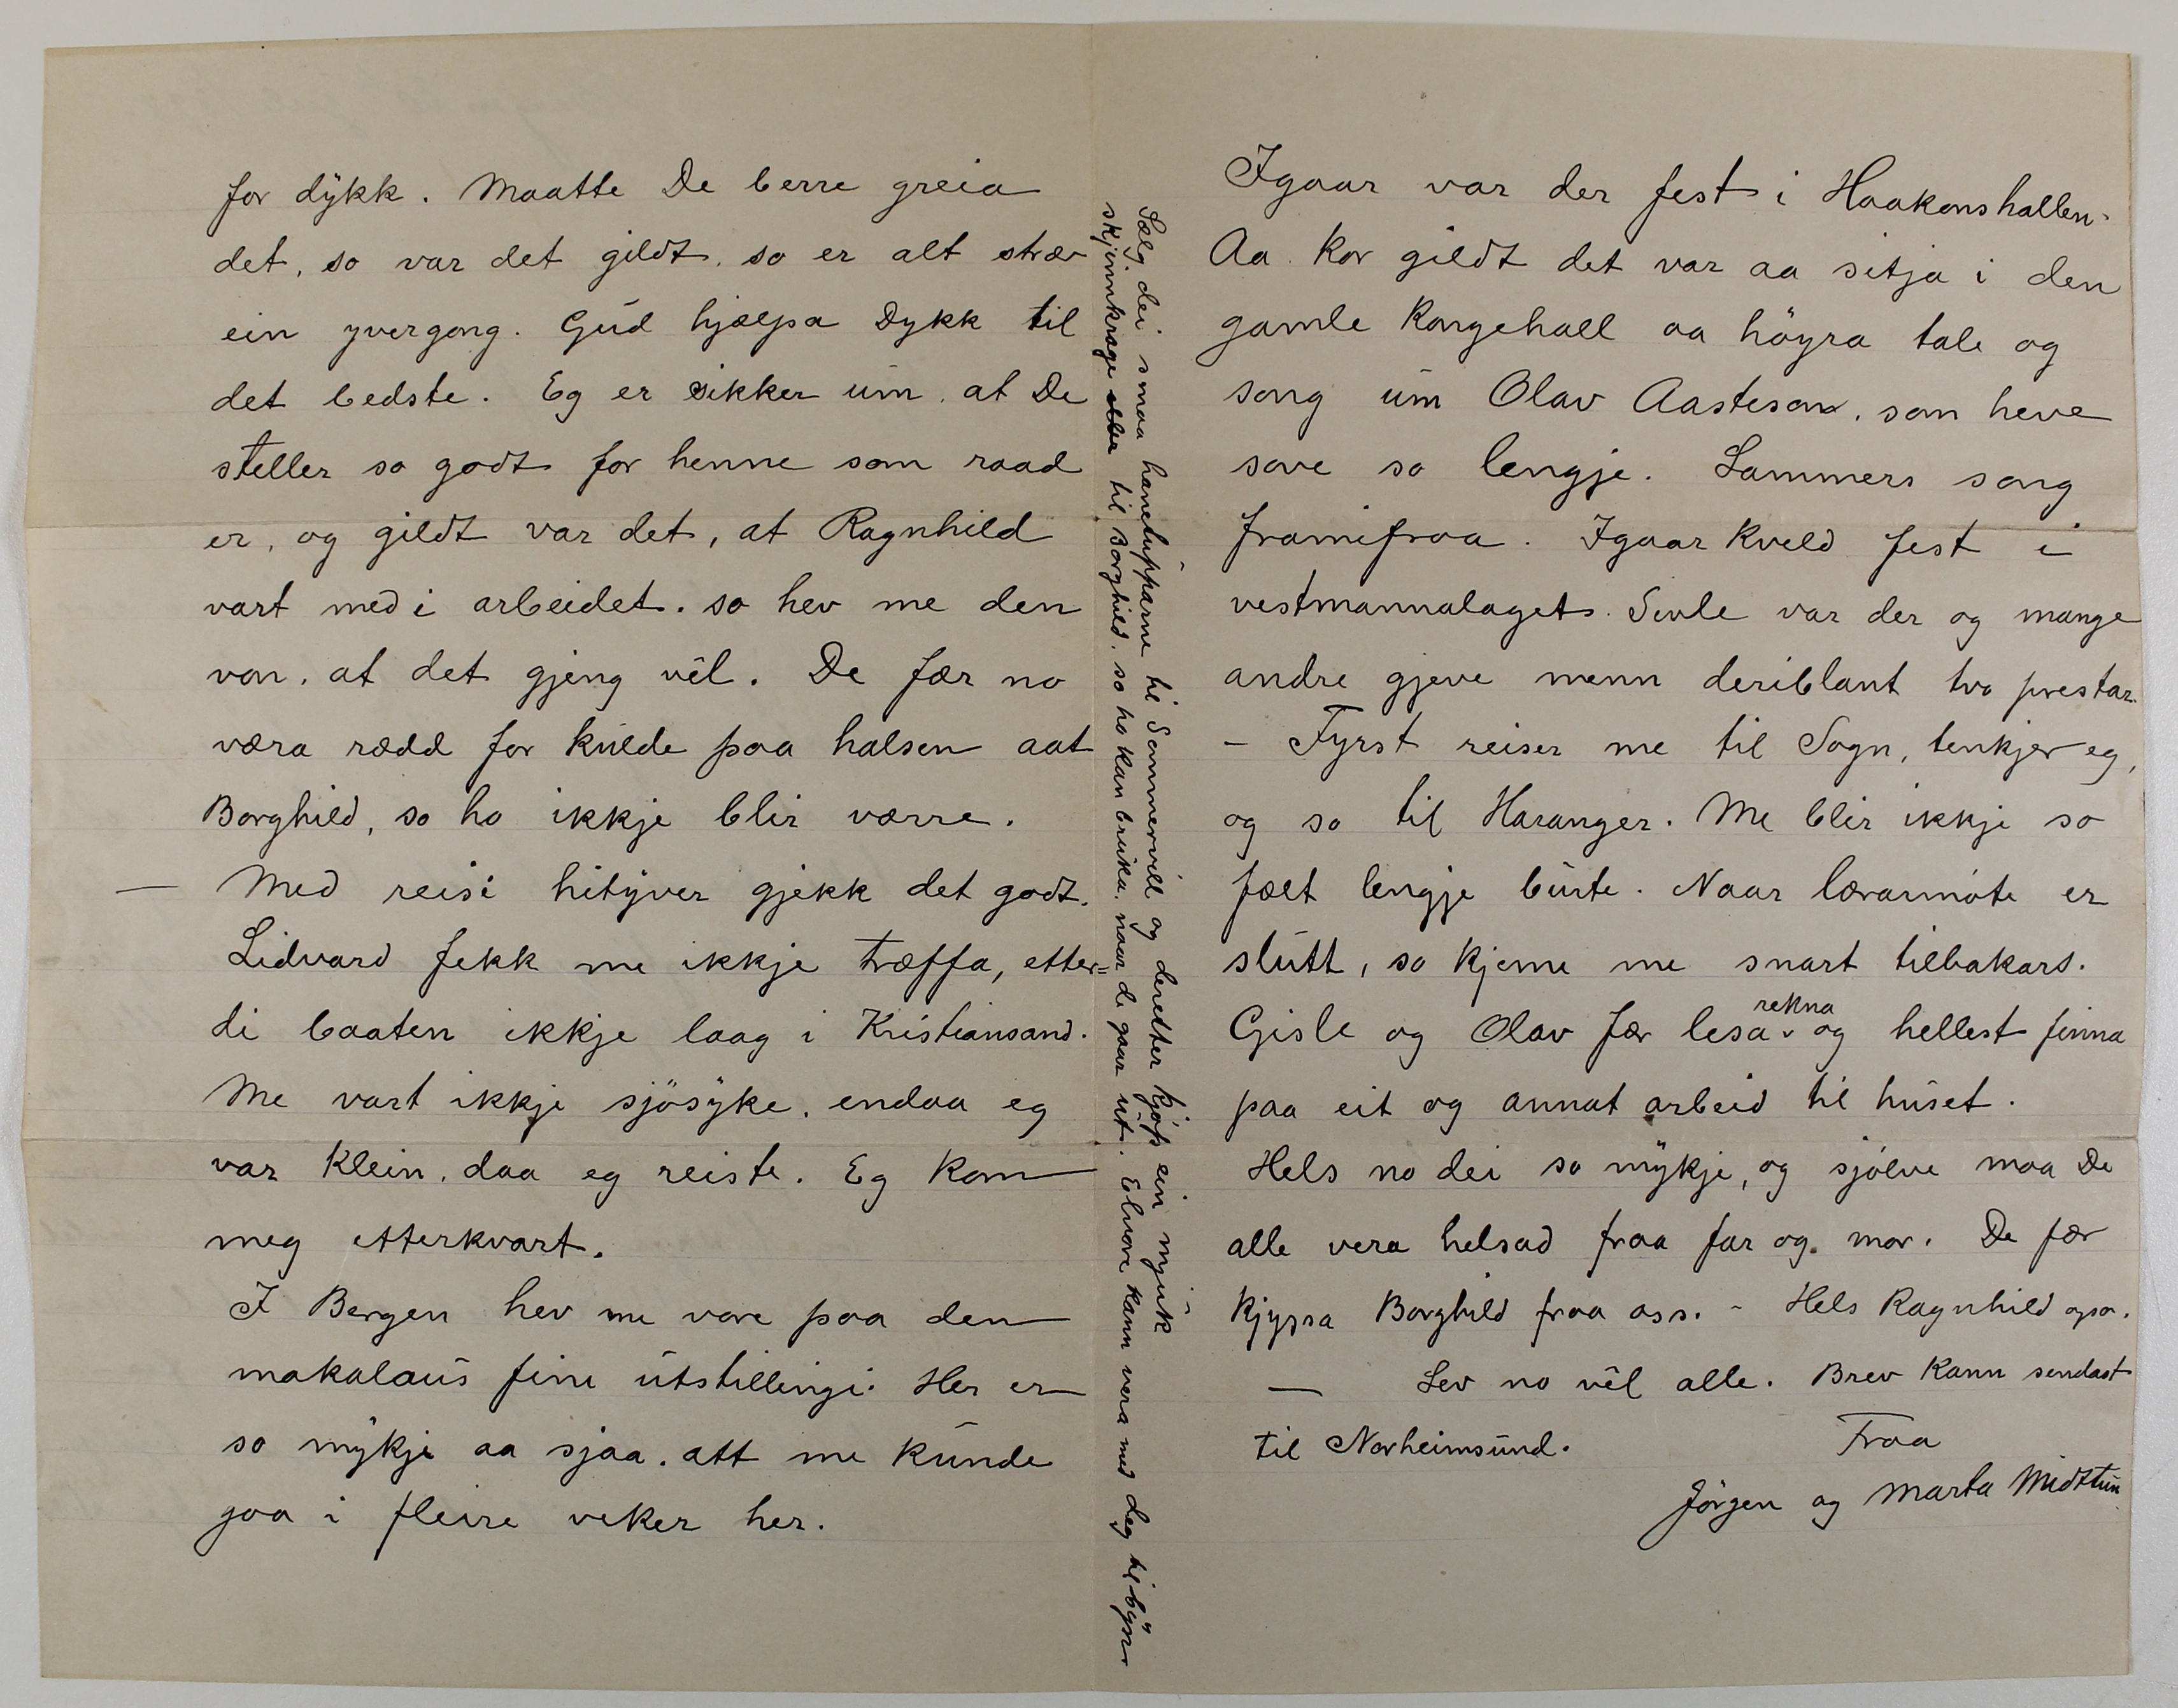 for dykk. Maatte De berre greia
det, so var det gildt, so er alt stræv
ein yvergong. Gud hjælpa Dykk til
det bedste. Eg er sikker um, at De
steller so godt for henne som raad
er, og gildt var det, at Ragnhild
vart med i arbeidet. so hev me den
von, at det gjeng vel. De fær no
væra rædd for kulde paa halsen aat
Borghild, so ho ikkje blir værre.
— Med reisi hityver gjekk det godt.
Lidvard fekk me ikkje træffa, etter=
di baaten ikkje laag i Kristiansand.
Me vart ikkje sjösyke, endaa eg
var klein, daa eg reiste. Eg kom
meg etterkvart.
I Bergen hev me vore paa den
makalaus fine utstillingi. Her er
so mykje aa sjaa, att me kunde
gaa i fleire veker her.
Sælg dei smaa hanetupparne til Sommervill og deretter kjöp ein mjuk
skjinnkrage til Borghild, so ho kan bruka, naar de gaar ut. Elivore kann vera med deg til byss
Igaar var der fest i Haakonshallen.
Aa kor gildt det var aa sitja i den
gamle Kongehall aa höyra tale og
song um Olav Aasteson, som heve
sove so lengje. Lammers song
framifraa. Igaar kveld fest i
vestmannalaget. Sivle var der og mange
andre gjeve menn deriblant tvo prestar.
– Fyrst reiser me til Sogn, tenkjer eg,
og so til Haranger. Me blir ikkje so
fælt lengje burte. Naar lærarmöte er
slutt, so kjeme me snart tilbakars.
Gisle og Olav fær lesa rekna og hellest finna
paa eit og annat arbeid til huset.
Hels no dei so mykje, og sjölve maa De
alle vera helsad fraa far og mor. De fær
kjyssa Borghild fraa oss. – Hels Ragnhild ogso.
— Lev no vel alle. Brev kann sendast
til Norheimsund. Fraa
Jörgen og Marta Midttun